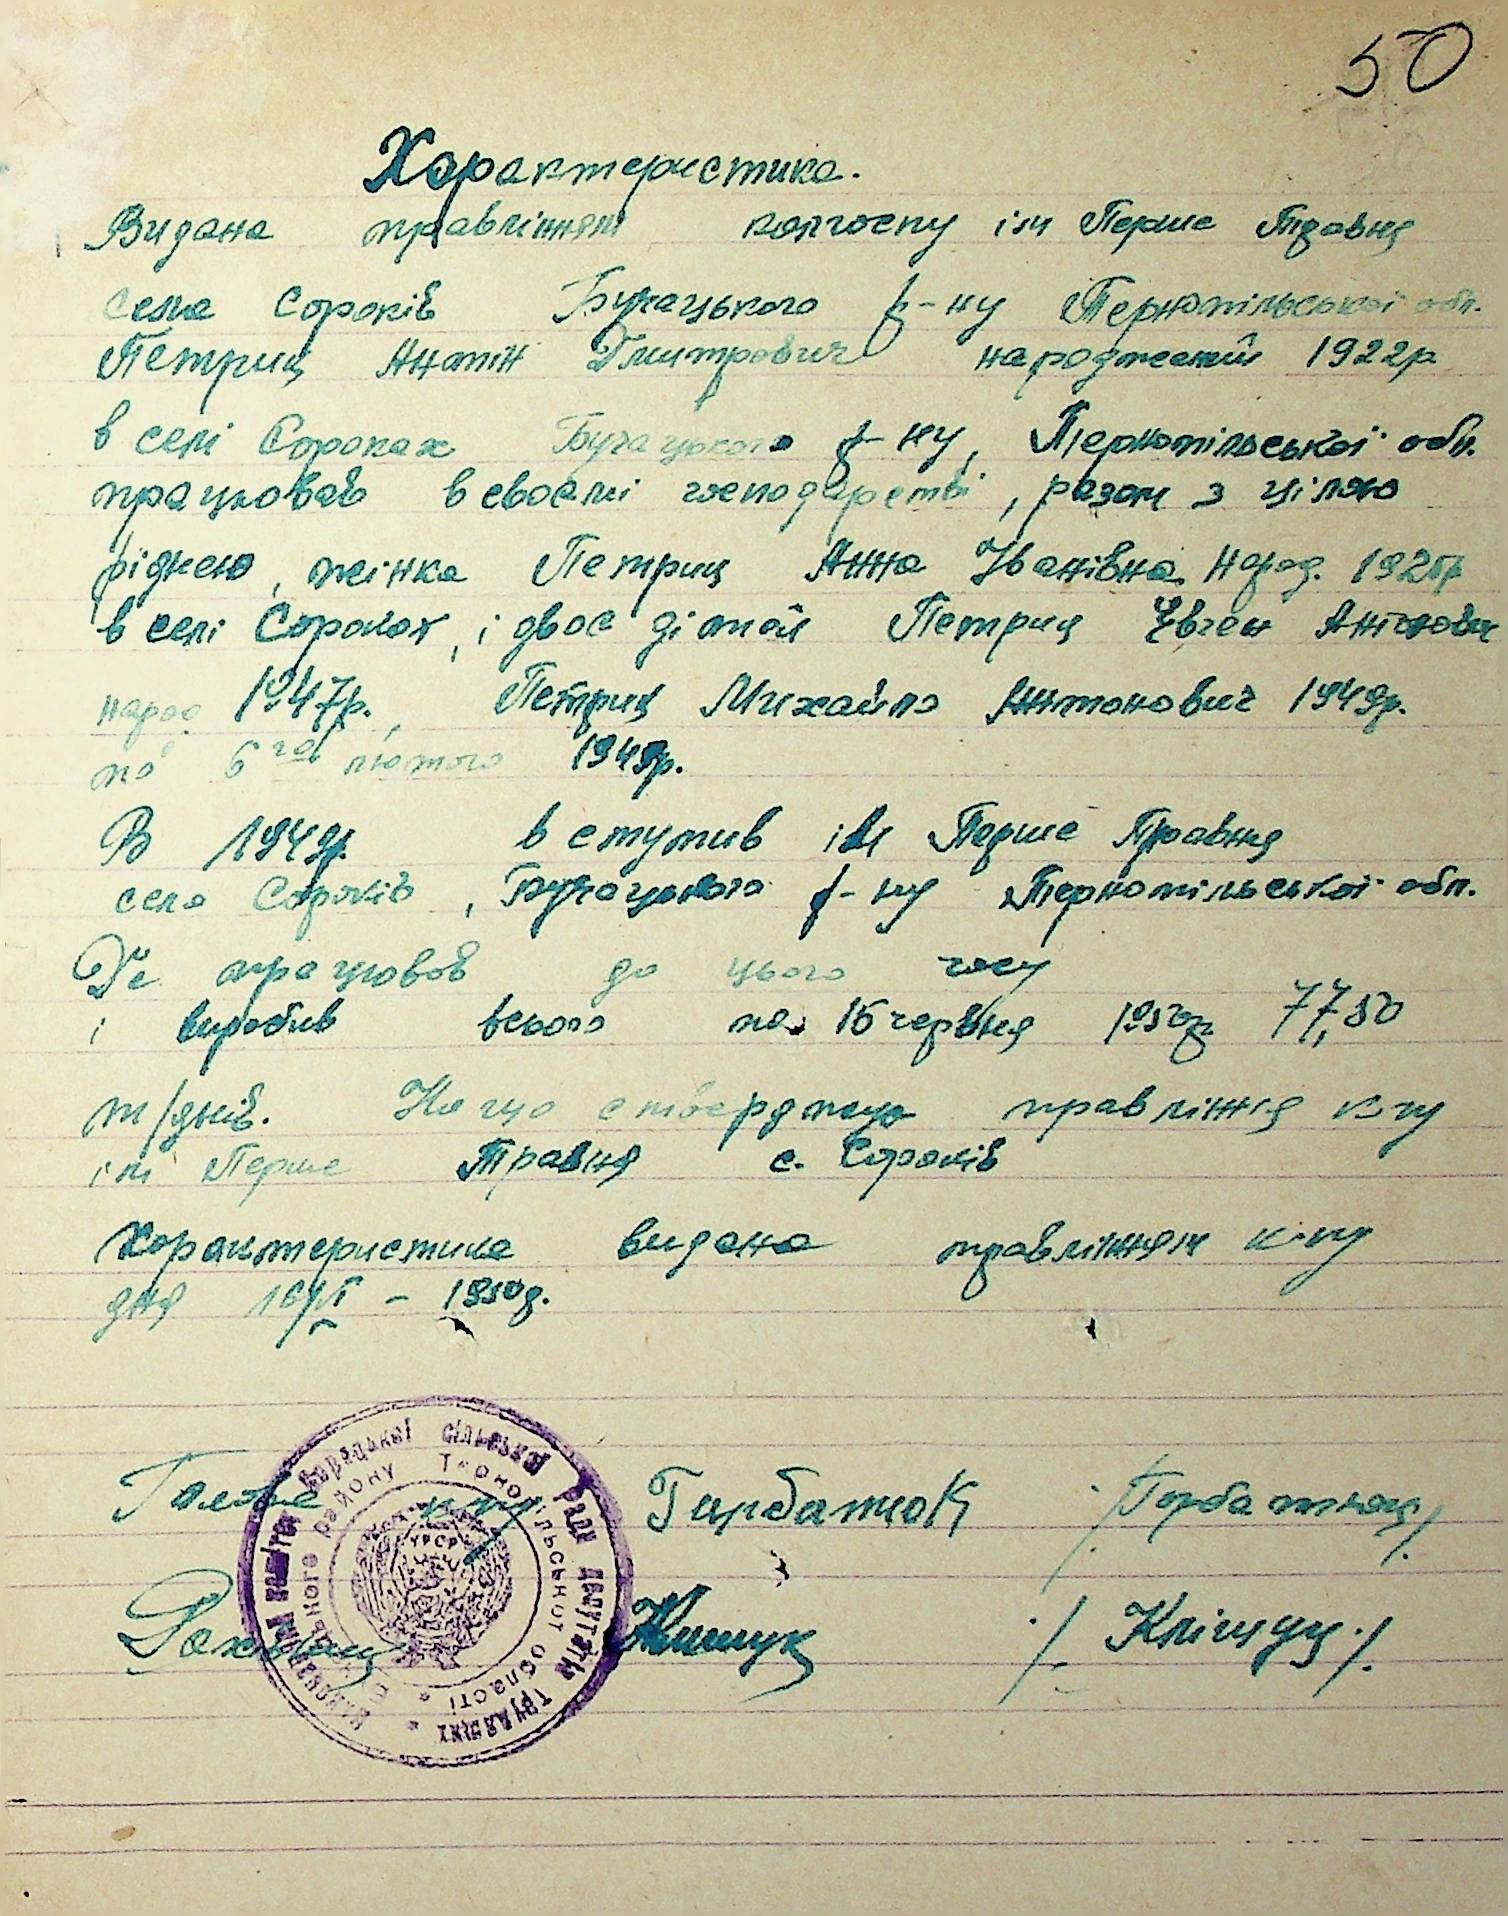 50
Характеристика.
Видана правлінням колгоспу ім Перше Травня
села Сороків Бучацького р-ну Тернопільської обл.
Петриц Антін Дмитрович народжений 1922р
в селі Сороках Бучацького р-ну, Тернопільської обл.
працював в своємі господарстві, разом з цілою
ріднею, жінка Петриц Анна Іванівна народ.
в селі Сороках, і двоє дітей Петриц Євген
народ 1947р., Петриц Михайло Антонович 1949р.
по 6го лютого 1949р.
В 1949р. вступив ім Перше Травня
села Сороків, Бучацького р-ну Тернопільської обл.
Де працював до цього часу
і виробив всього по 15 червня 1950р 77,50
т/днів. На що стверджує правління к-пу
ім Перше Травня с. Сороків
Характеристика видана правлінням к-пу
дня 16/VI - 1950р.
Голова к-пу Горбатюк /Горбатюк/
Рахівниц Клішук /Кліщуц/
сільської ради депутатів трудящих
району Тернопільської області
УРСР